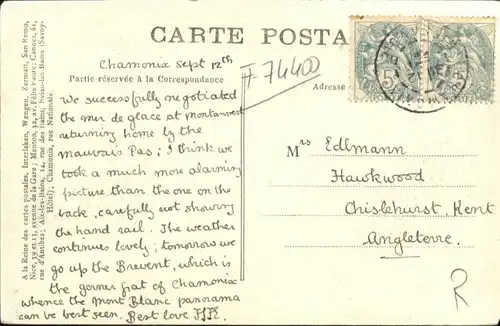 CARTE POSTA
Chamonix Sept 12th
F 74400
Partie réservée à la Correspondance
Adresse
We successfully negotiated
the mer de glace at montanvert
returning home by the
mauvais Pas; I think we
took a much more alarming
picture than the one on the
back, carefully not showing
the hand rail. The weather
continues lovely; tomorrow we
go up the Brevent, which is
the gorner grat of Chamonix
whence the Mont Blanc panorama
can be best seen. Best love
Mrs Edlmann
Hawkwood
Chislehurst. Kent
Angleterre.
R
A la Reine des cartes postales, Interlaken, Wengen, Zermatt, San Remo,
Nice, 39 et 13, avenue de la Gare; Menton, 32, av. Félix Faure; Cannes, 61,
rue d'Antibes; Aix-les-Bains, 14, rue des Bains;
Hôtel); Chamonix, rue Nationale
5